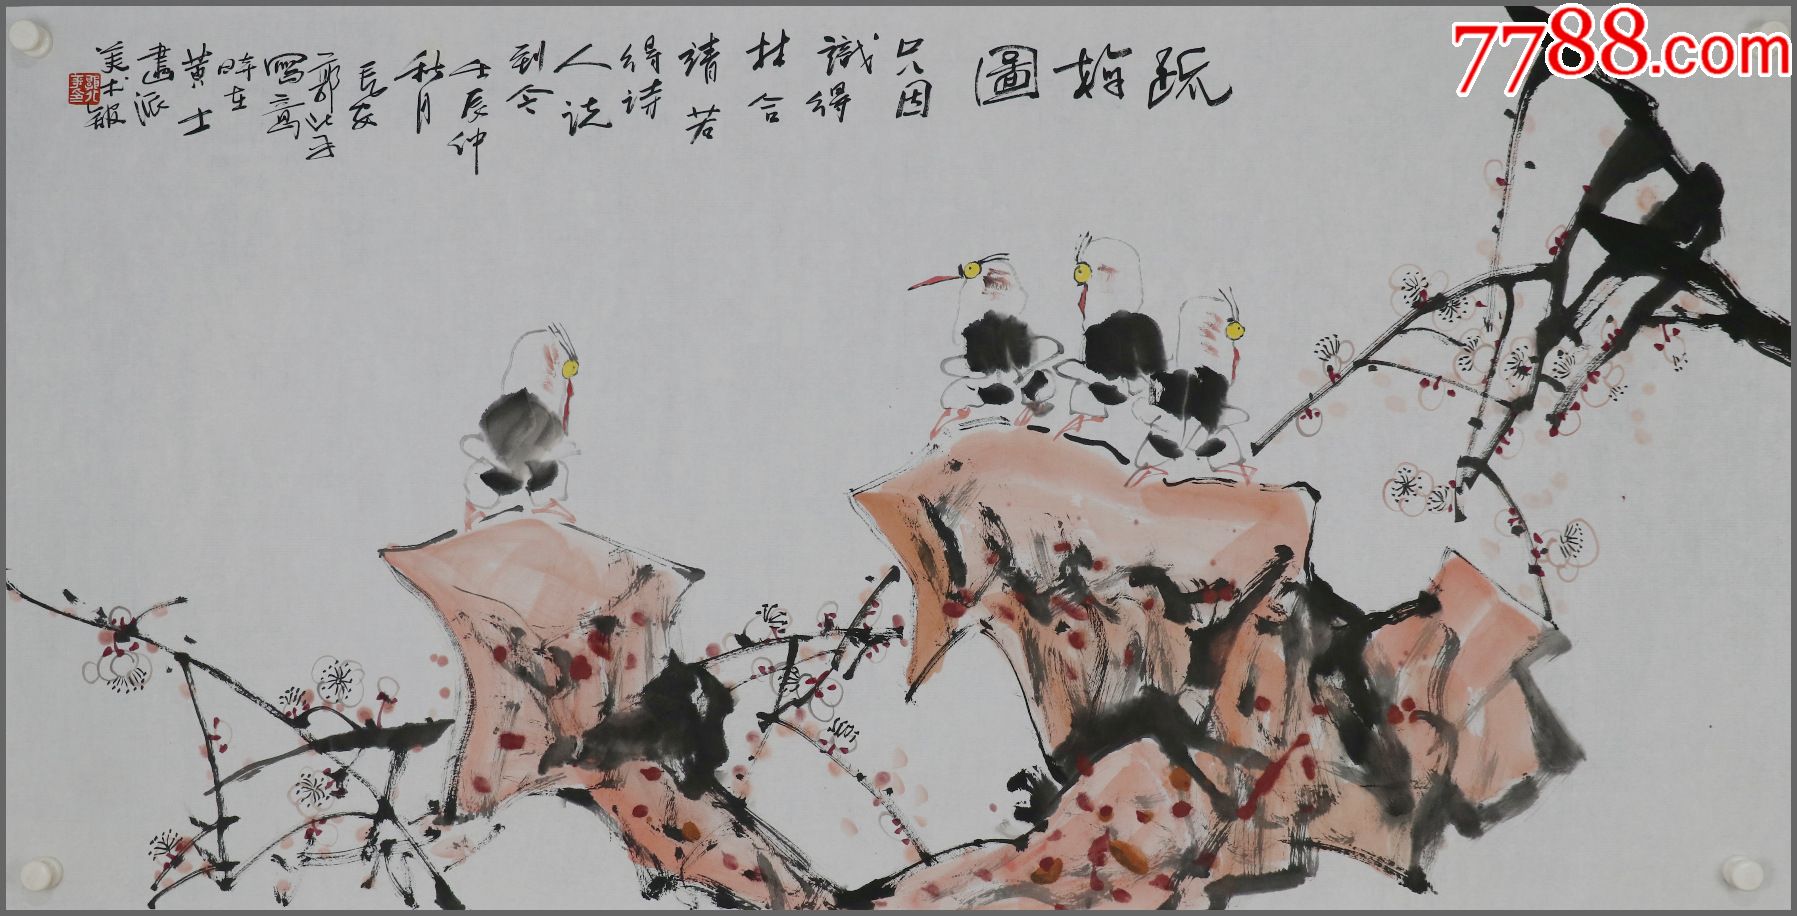 疏梅圖
只因
識得
林合
靖若
得詩
人说
到今
壬辰仲
秋月
長安
寫
時在
黄士
畫派
美术報
7788.com